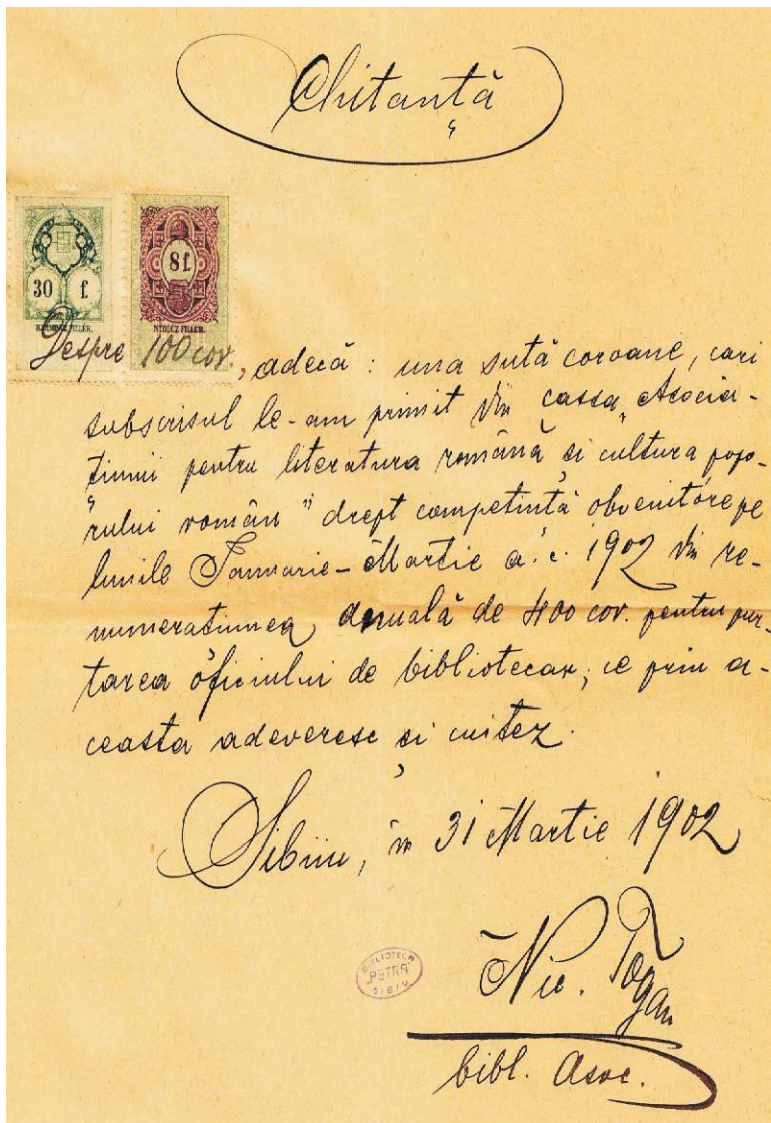 Chitanță
30 f.
HARMINCZ FILLÉR.
8 f.
NYOLCZ FILLÉR.
Despre 100 cor., adecă : una sută coroane, cari
subscrisul le-am primit din cassa „Asocia-
țiunii pentru literatura română și cultura popo-
rului român" drept competință obvenitóre pe
lunile Ianuarie-Martie a. c. 1902 din re-
numerațiunea anuală de 400 cor. pentru pur-
tarea oficiului de bibliotecar; ce prin a-
ceasta adeveresc și cuitez.
Sibiiu, în 31 Martie 1902
Nic. Togan
bibl. Asoc.
BIBLIOTECA
"ASTRA"
SIBIU